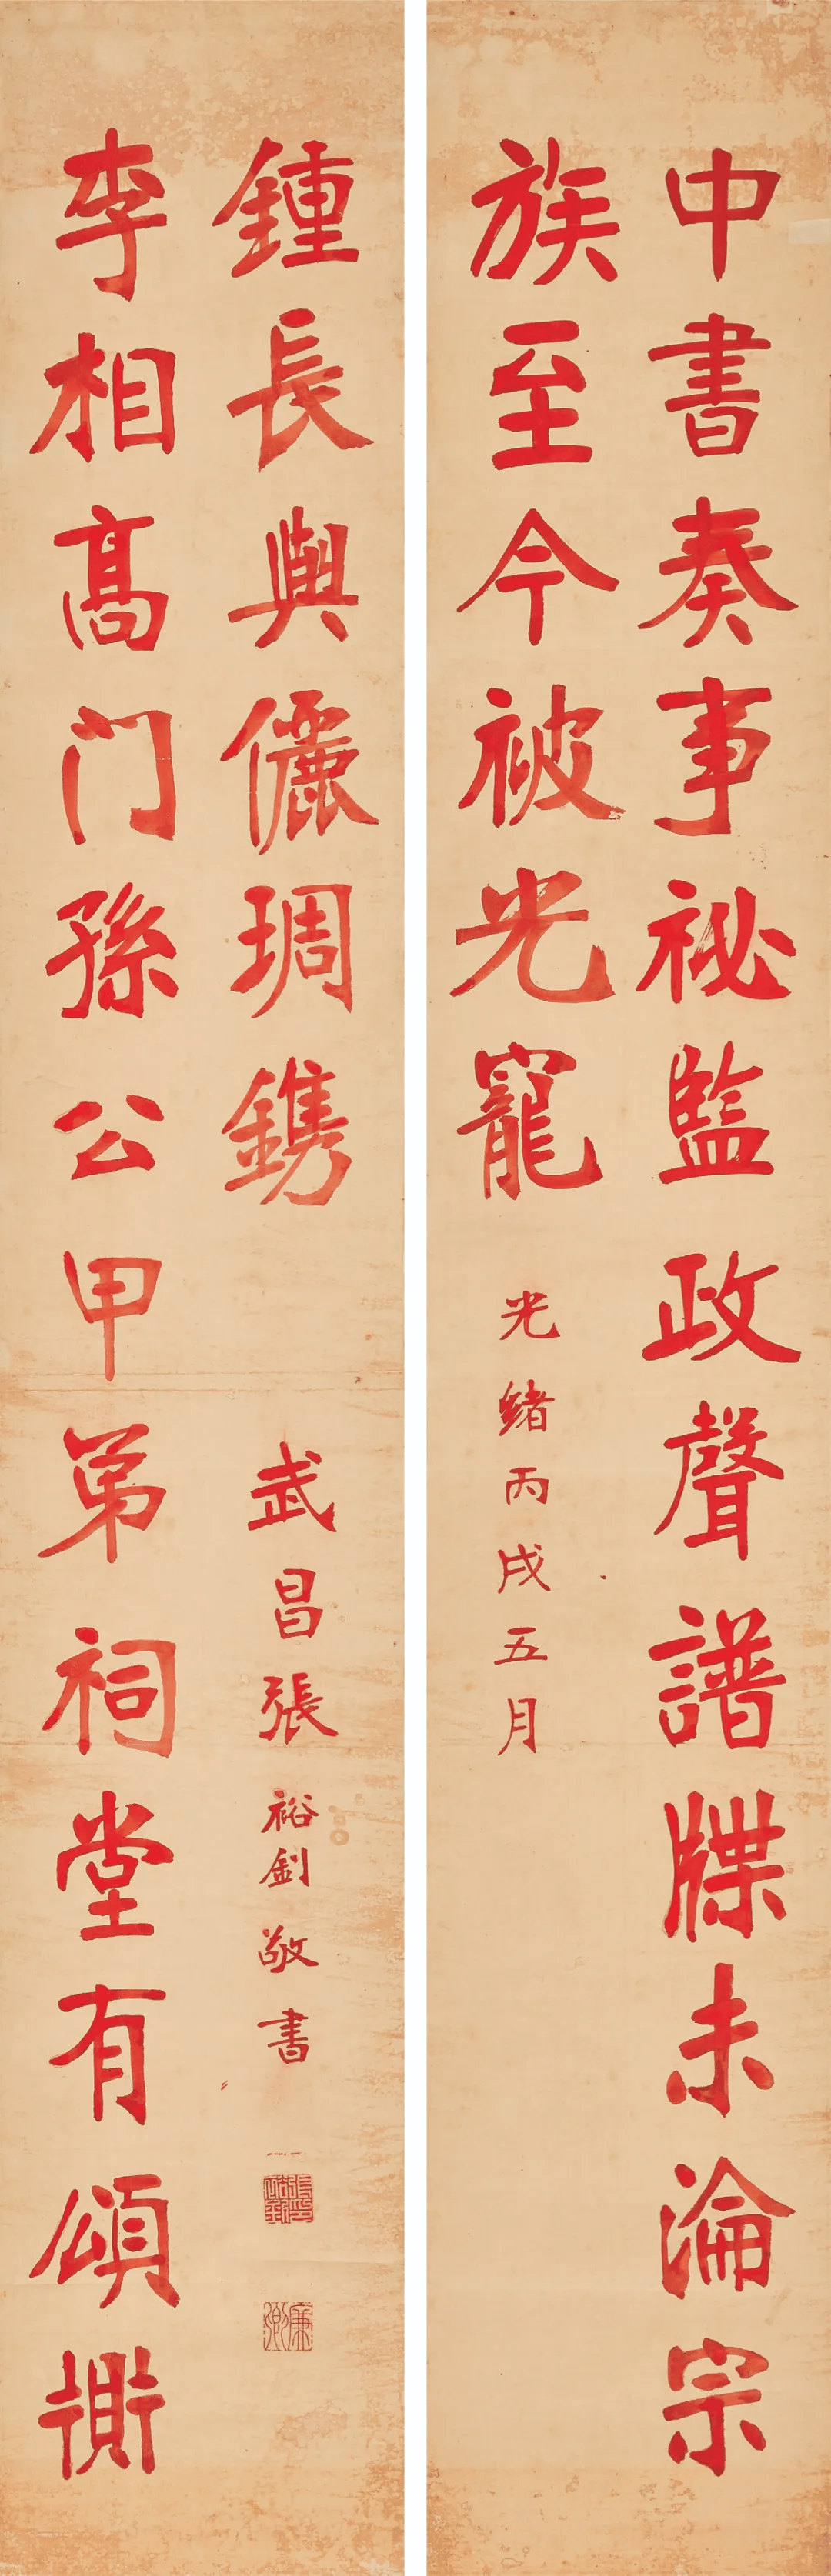 中書奏事祕監政聲譜牒未淪宗
族至今被光寵
光緒丙戌五月
李相髙门孫公甲弟祠堂有頌衡
鍾長與儷琱鎸
武昌張裕釗敬書
張裕釗印
廉卿